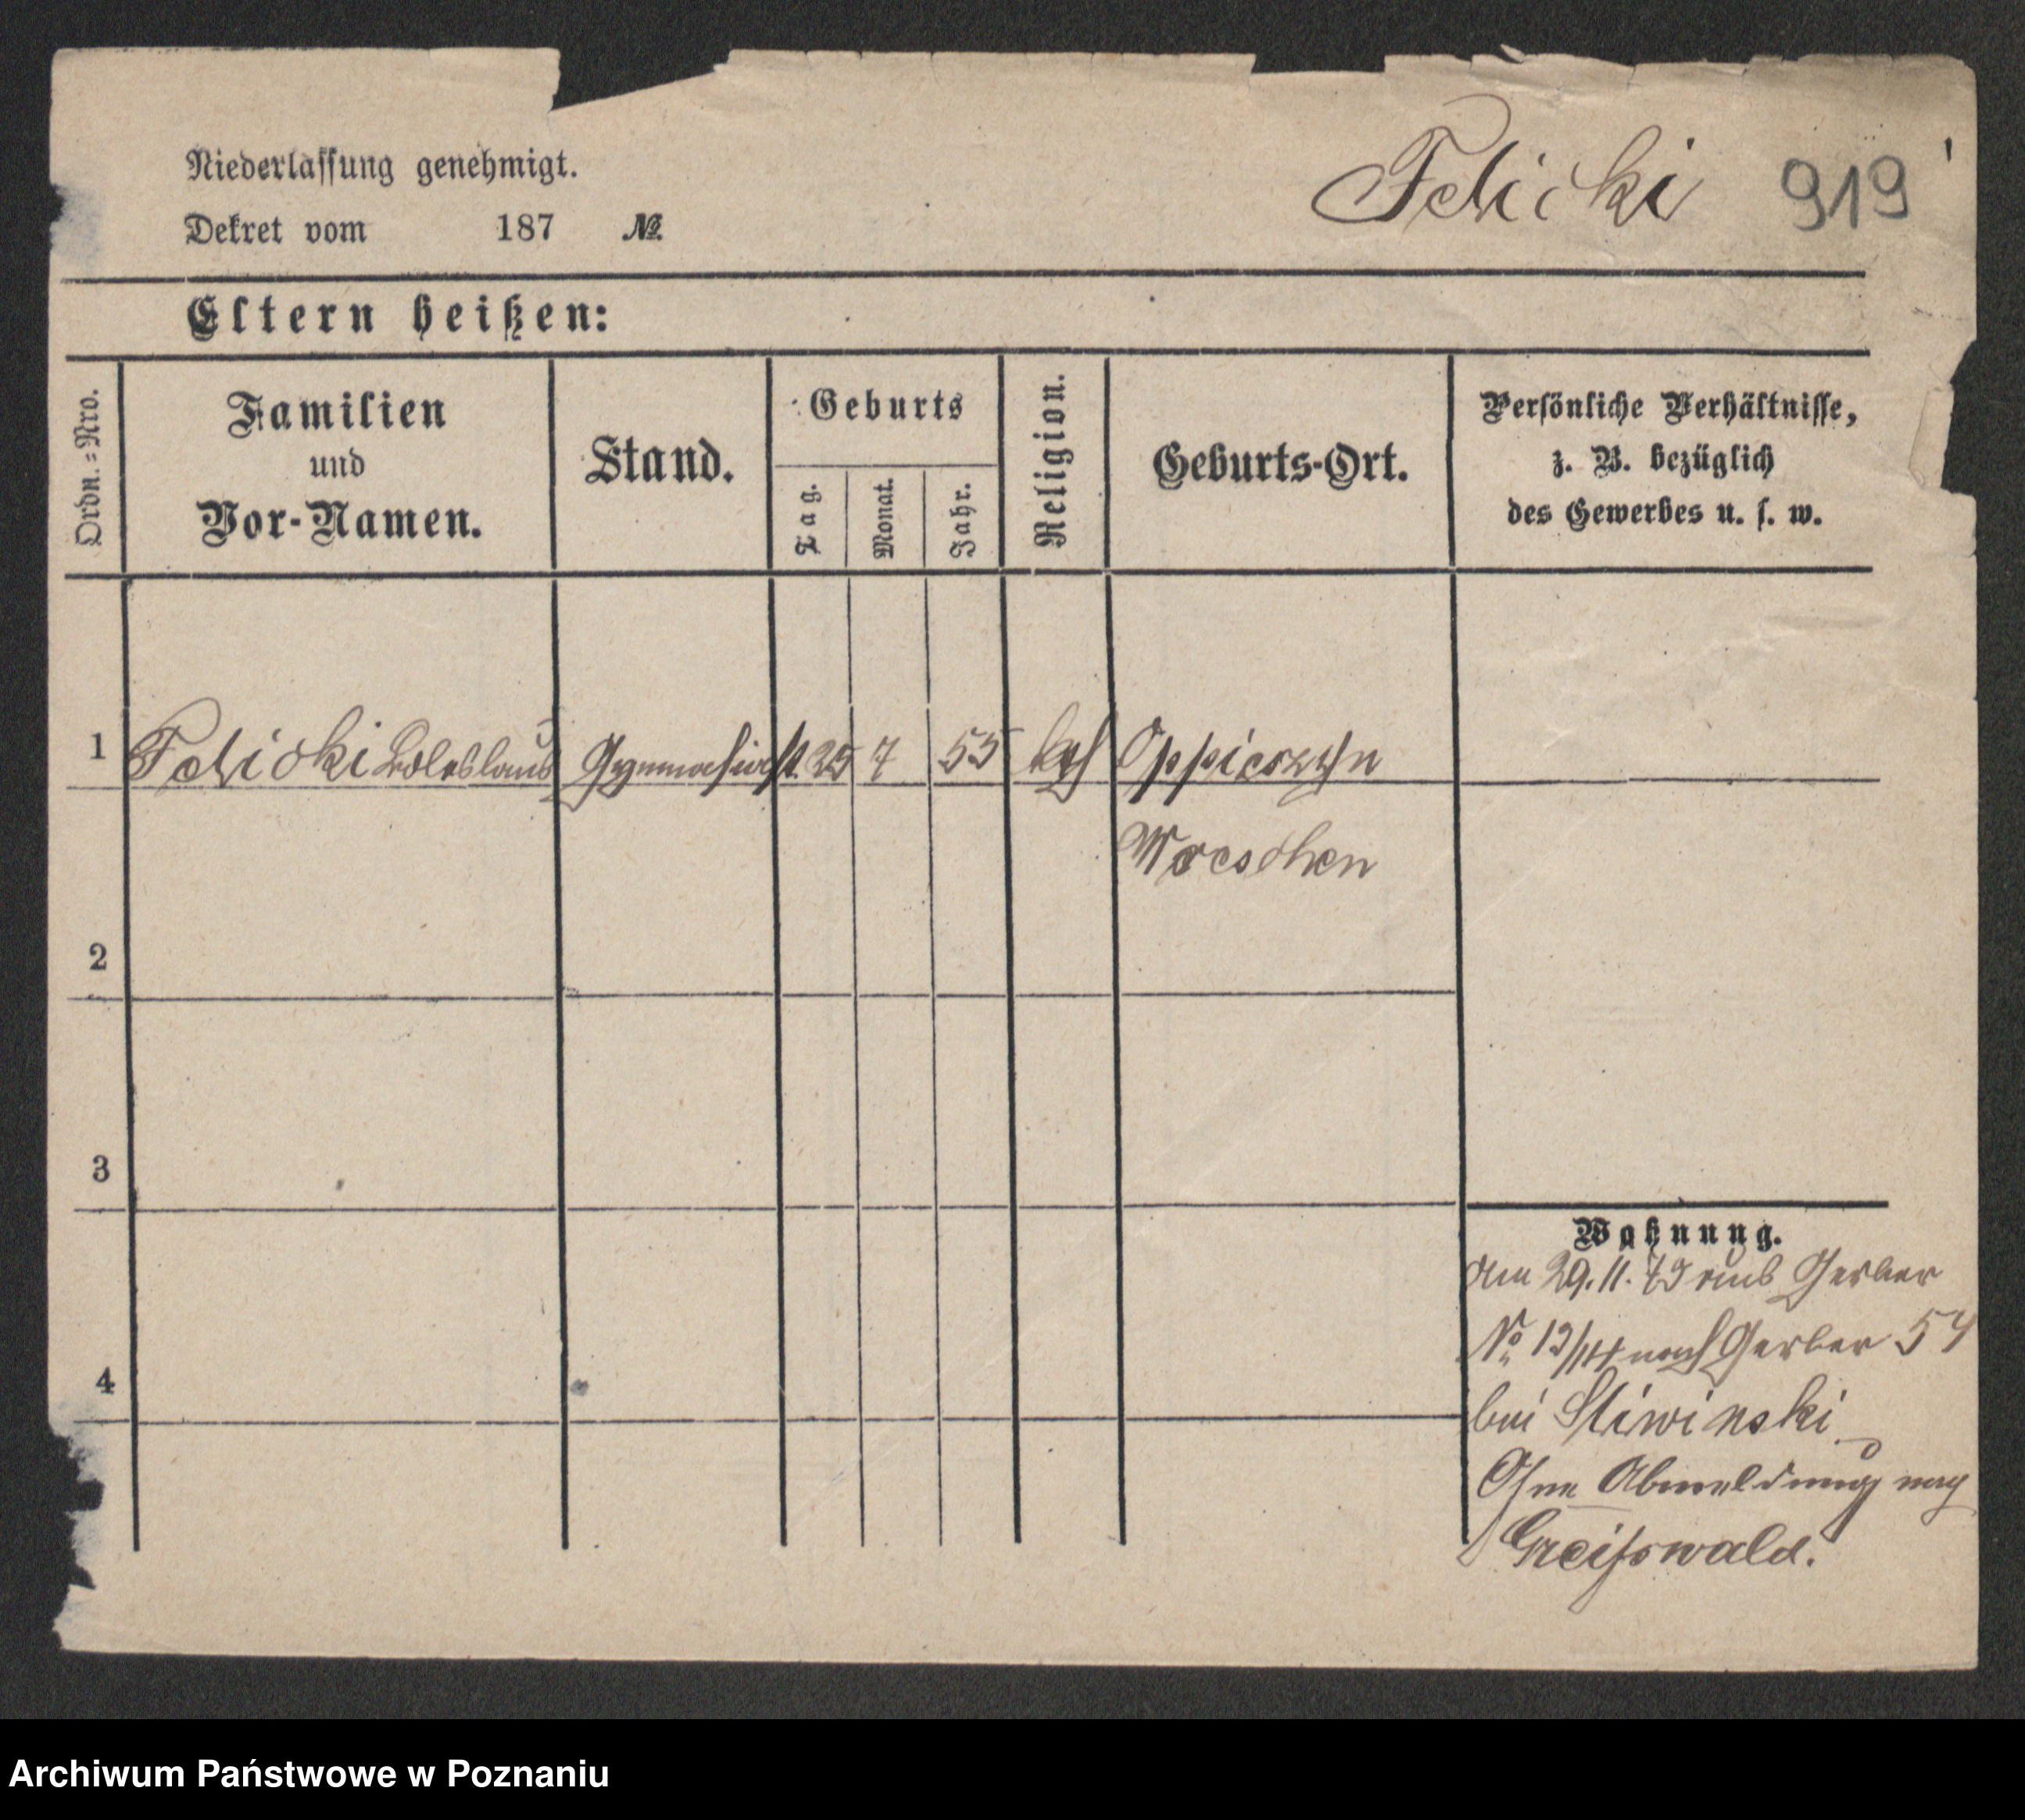 Niederlassung genehmigt.
Dekret vom 187 №
Felicki 919
Eltern heißen:
Ordn.=Nro.
Familien
und
Vor-Namen.
Stand.
Geburts
Tag.
Monat.
Jahr.
Religion.
Geburts-Ort.
Persönliche Verhältnisse,
z. B. bezüglich
des Gewerbes u. s. w.
1 Felicki Boleslaus Gymnasiast. 25 7 55 kath
Wreschen
2
3
4
Wohnung.
Am 29.11.79 aus Gerber
No 13/14 nach Gerber 54
bei Sliwinski
Ohne Abmeldung nach
Greifswald.
Archiwum Państwowe w Poznaniu